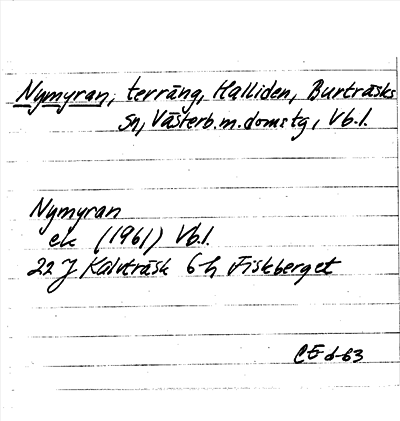 Nymyran, terräng, Halliden, Burträsks
sn, Västerb. m. domstg, Vb. l.
Nymyran
ek (1961) Vb. l.
22 J Kalvträsk 6 h Fiskberget
CE d-63